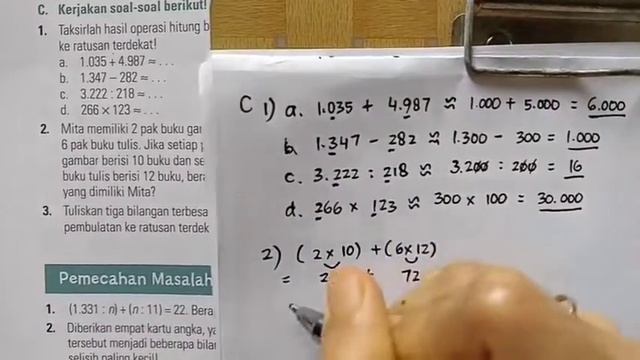 C. Kerjakan soal-soal berikut!
1. Taksirlah hasil operasi hitung b
ke ratusan terdekat!
a. 1.035 + 4.987 ≈ . . .
b. 1.347 – 282 ≈ . . .
c. 3.222 : 218 ≈ . . .
d. 266 × 123 ≈ . . .
2. Mita memiliki 2 pak buku gar
6 pak buku tulis. Jika setiap
gambar berisi 10 buku dan se
buku tulis berisi 12 buku, ber
yang dimiliki Mita?
3. Tuliskan tiga bilangan terbesa
pembulatan ke ratusan terdek
Pemecahan Masalah
1. (1.331 : n) + (n : 11) = 22. Bera
2. Diberikan empat kartu angka, ya
tersebut menjadi beberapa bilar
selisih paling kecil!
C 1) a. 1.035 + 4.987 ≈ 1.000 + 5.000 = 6.000
b. 1.347 - 282 ≈ 1.300 - 300 = 1.000
c. 3.222 : 218 ≈ 3.200 : 200 = 16
d. 266 × 123 ≈ 300 × 100 = 30.000
2) (2 × 10) + (6 × 12)
= 2 72